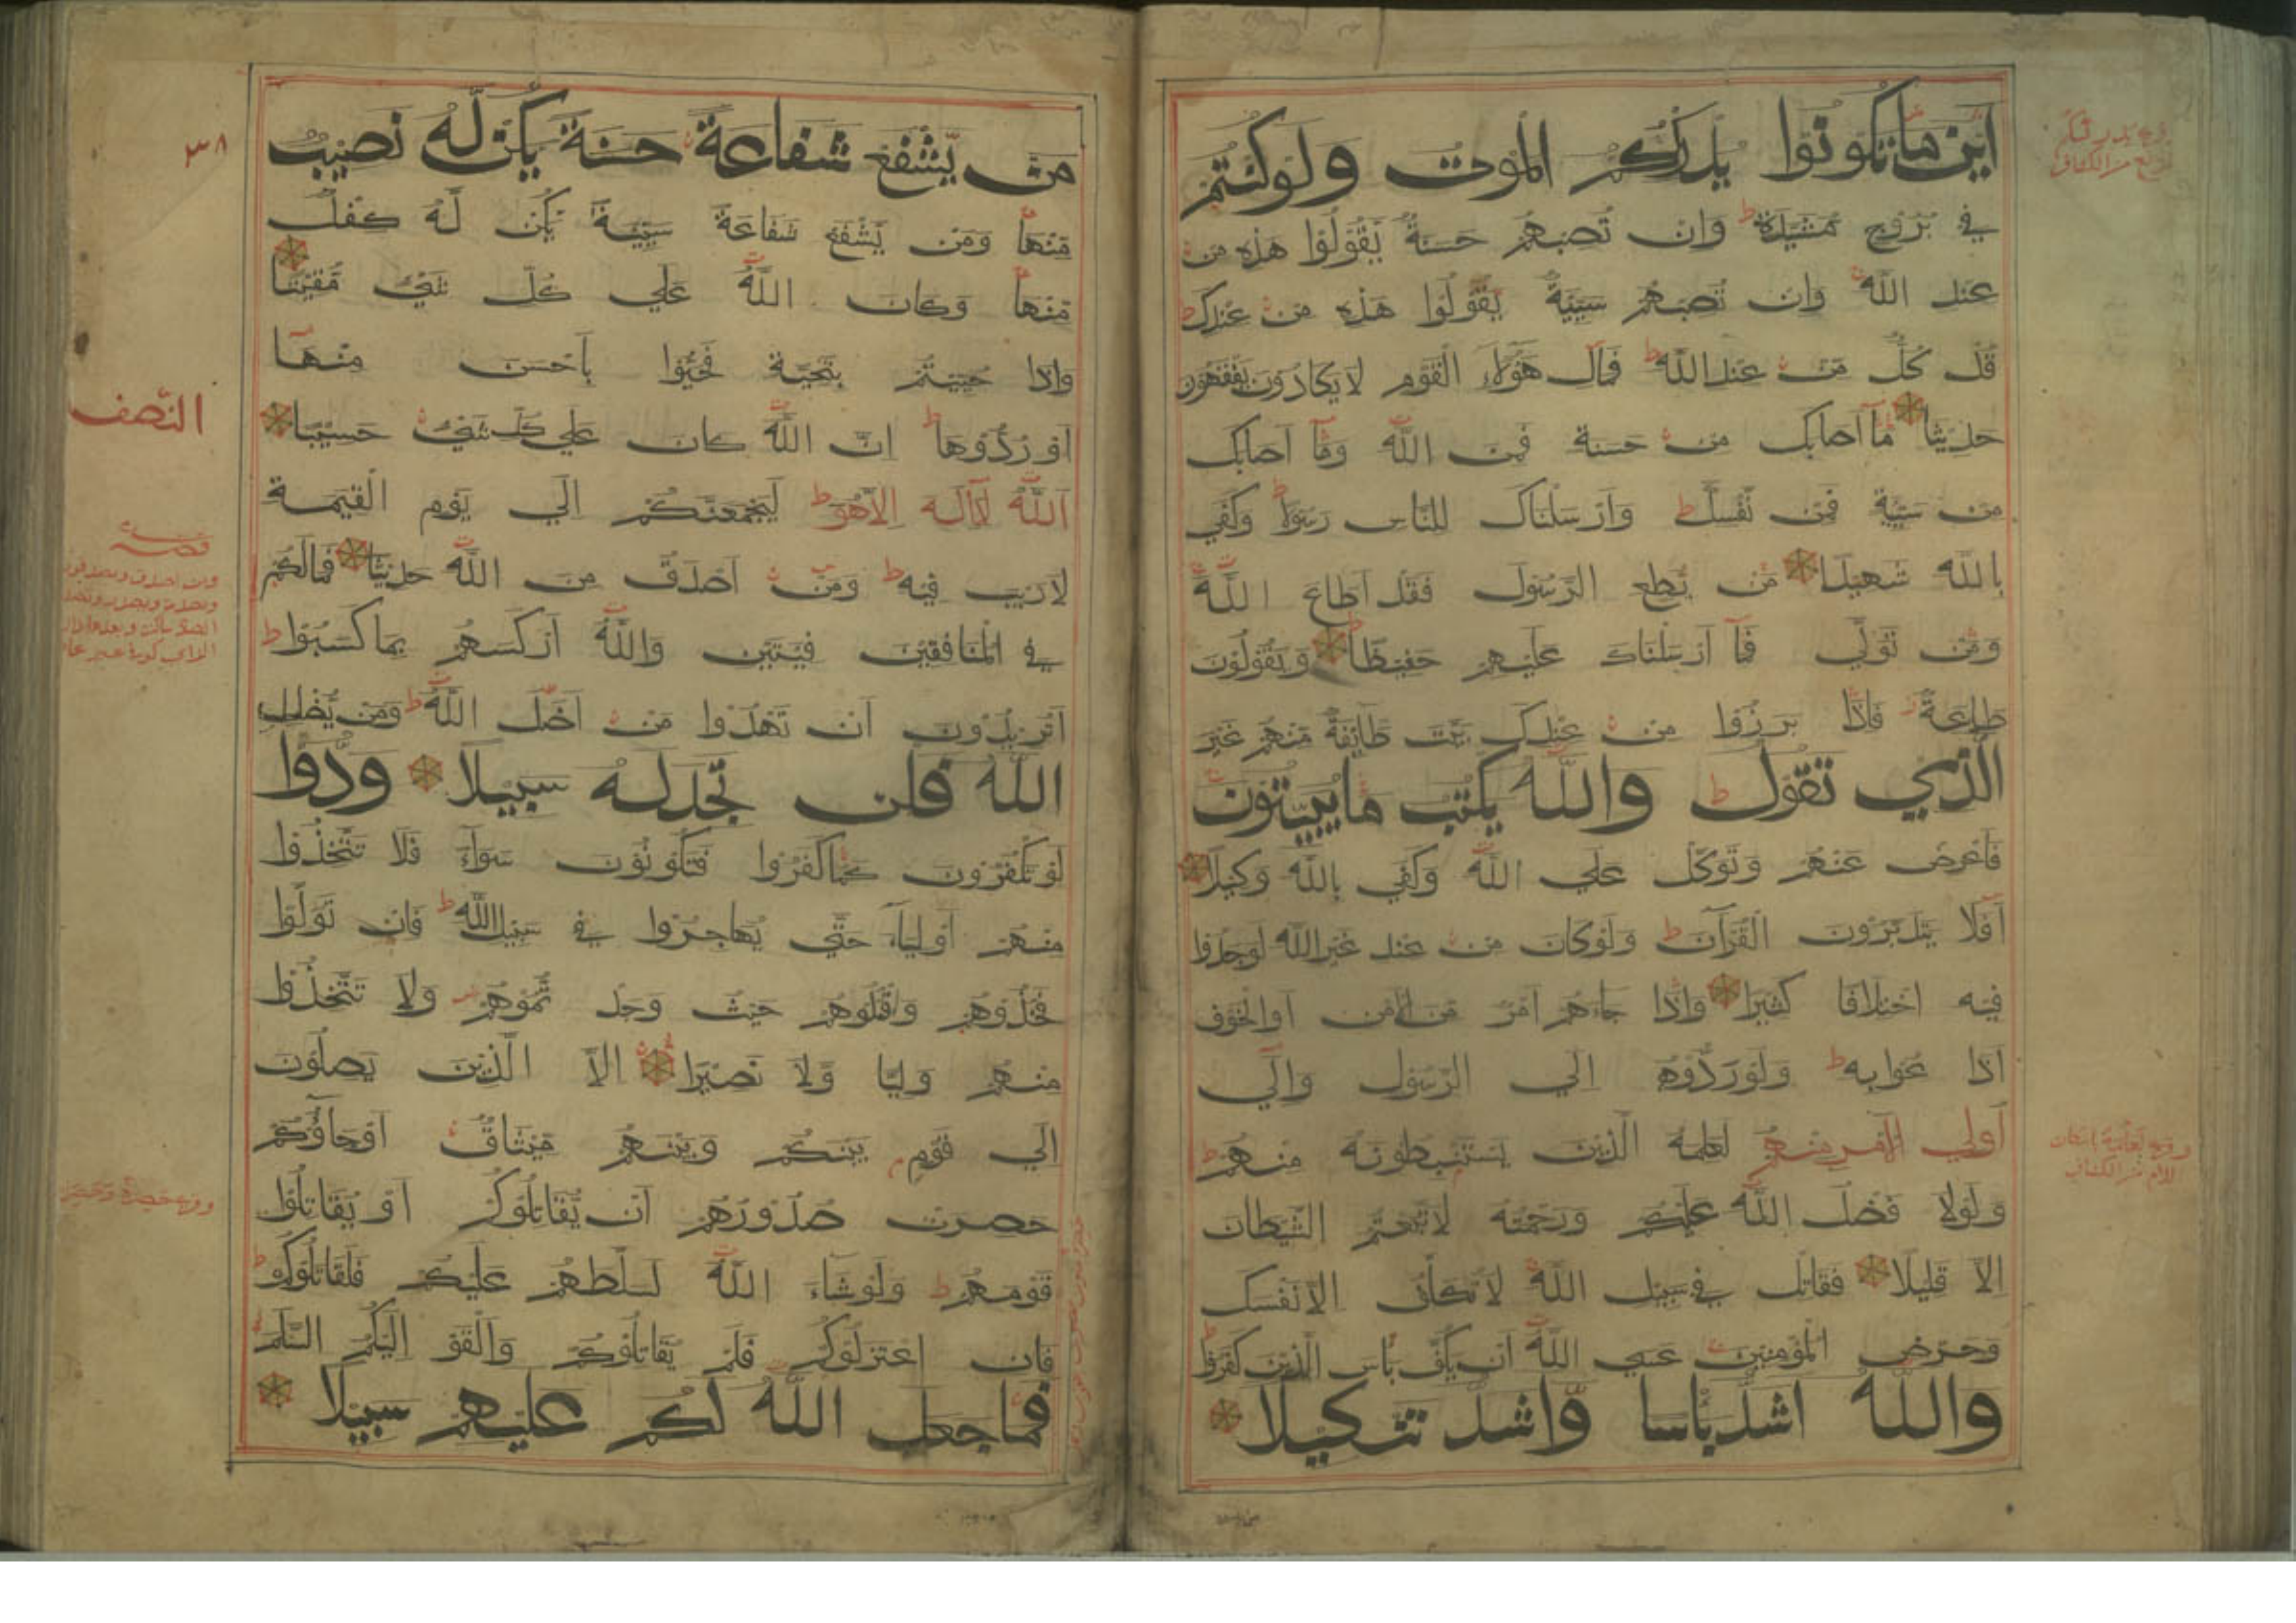 اين ما تكونوا يدرككم الموت ولو كنتم
في بروج مشيدة ط وان تصبهم حسنة يقولوا هذه من
عند الله وان تصبهم سيئة يقولوا هذه من عندك ط
قل كل من عند الله ط فمال هؤلاء القوم لا يكادون يفقهون
حديثا ما اصابك من حسنة فمن الله وما اصابك
من سيئة فمن نفسك ط وارسلناك للناس رسولا ط وكفي
بالله شهيدا من يطع الرسول فقد اطاع الله
ومن تولي فما ارسلناك عليهم حفيظا ويقولون
طاعة فاذا برزوا من عندك بيت طايفة منهم غير
الذي تقول ط والله يكتب ما يبيتون
فاعرض عنهم وتوكل علي الله وكفي بالله وكيلا
افلا يتدبرون القرآن ط ولو كان من عند غير الله لوجدوا
فيه اختلافا كثيرا واذا جاءهم امر من الامن او الخوف
اذاعوا به ط ولو ردوه الي الرسول والي
اولي الامر منهم لعلمه الذين يستنبطونه منهم ط
ولولا فضل الله عليكم ورحمته لاتبعتم الشيطان
الا قليلا فقاتل في سبيل الله لا تكلف الا نفسك
وحرض المؤمنين عسي الله ان يكف بأس الذين كفروا ط
والله اشد بأسا واشد تنكيلا
من يشفع شفاعة حسنة يكن له نصيب
منها ومن يشفع شفاعة سيئة يكن له كفل
منها وكان الله علي كل شئ مقيتا
واذا حييتم بتحية فحيوا باحسن منها
او ردوها ط ان الله كان علي كل شئ حسيبا
الله لا اله الا هو ط ليجمعنكم الي يوم القيمة
لا ريب فيه ط ومن اصدق من الله حديثا فما لكم
في المنافقين فيتين والله اركسهم بما كسبوا ط
اتريدون ان تهدوا من اضل الله ط ومن يضلل
الله فلن تجد له سبيلا ودوا
لو تكفرون كما كفروا فتكونون سواء فلا تتخذوا
منهم اولياء حتي يهاجروا في سبيل الله ط فان تولوا
فخذوهم واقتلوهم حيث وجدتموهم ولا تتخذوا
منهم وليا ولا نصيرا الا الذين يصلون
الي قوم بينكم وبينهم ميثاق او جاؤكم
حصرت صدورهم ان يقاتلوكم او يقاتلوا
قومهم ط ولو شاء الله لسلطهم عليكم فلقاتلوكم ط
فان اعتزلوكم فلم يقاتلوكم والقو اليكم السلم
فما جعل الله لكم عليهم سبيلا
٣٨
النصف